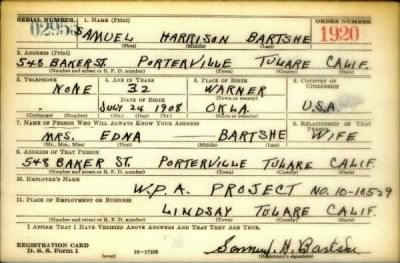 SERIAL NUMBER 1. NAME (Print) ORDER NUMBER
SAMUEL HARRISON BARTSHE 1920
(First) (Middle) (Last)
2. ADDRESS (Print)
548 BAKER ST. PORTERVILLE TULARE CALIF.
(Number and street or R. F. D. number) (Town) (County) (State)
3. TELEPHONE 4. AGE IN YEARS 5. PLACE OF BIRTH 6. COUNTRY OF CITIZENSHIP
NONE 32 WARNER
DATE OF BIRTH (Town or county)
JULY 24 1908 OKLA. U.S.A.
(Exchange) (Number) (Mo.) (Day) (Yr.) (State or country)
7. NAME OF PERSON WHO WILL ALWAYS KNOW YOUR ADDRESS 8. RELATIONSHIP OF THAT PERSON
MRS. EDNA BARTSHE WIFE
(Mr., Mrs., Miss) (First) (Middle) (Last)
9. ADDRESS OF THAT PERSON
548 BAKER ST. PORTERVILLE TULARE CALIF.
(Number and street or R. F. D. number) (Town) (County) (State)
10. EMPLOYER'S NAME
W.P.A. PROJECT NO. 10-10529
11. PLACE OF EMPLOYMENT OR BUSINESS
LINDSAY TULARE CALIF.
(Number and street or R. F. D. number) (Town) (County) (State)
I AFFIRM THAT I HAVE VERIFIED ABOVE ANSWERS AND THAT THEY ARE TRUE.
REGISTRATION CARD
D. S. S. Form 1 (over) H. Bartshe
(Registrant's signature)